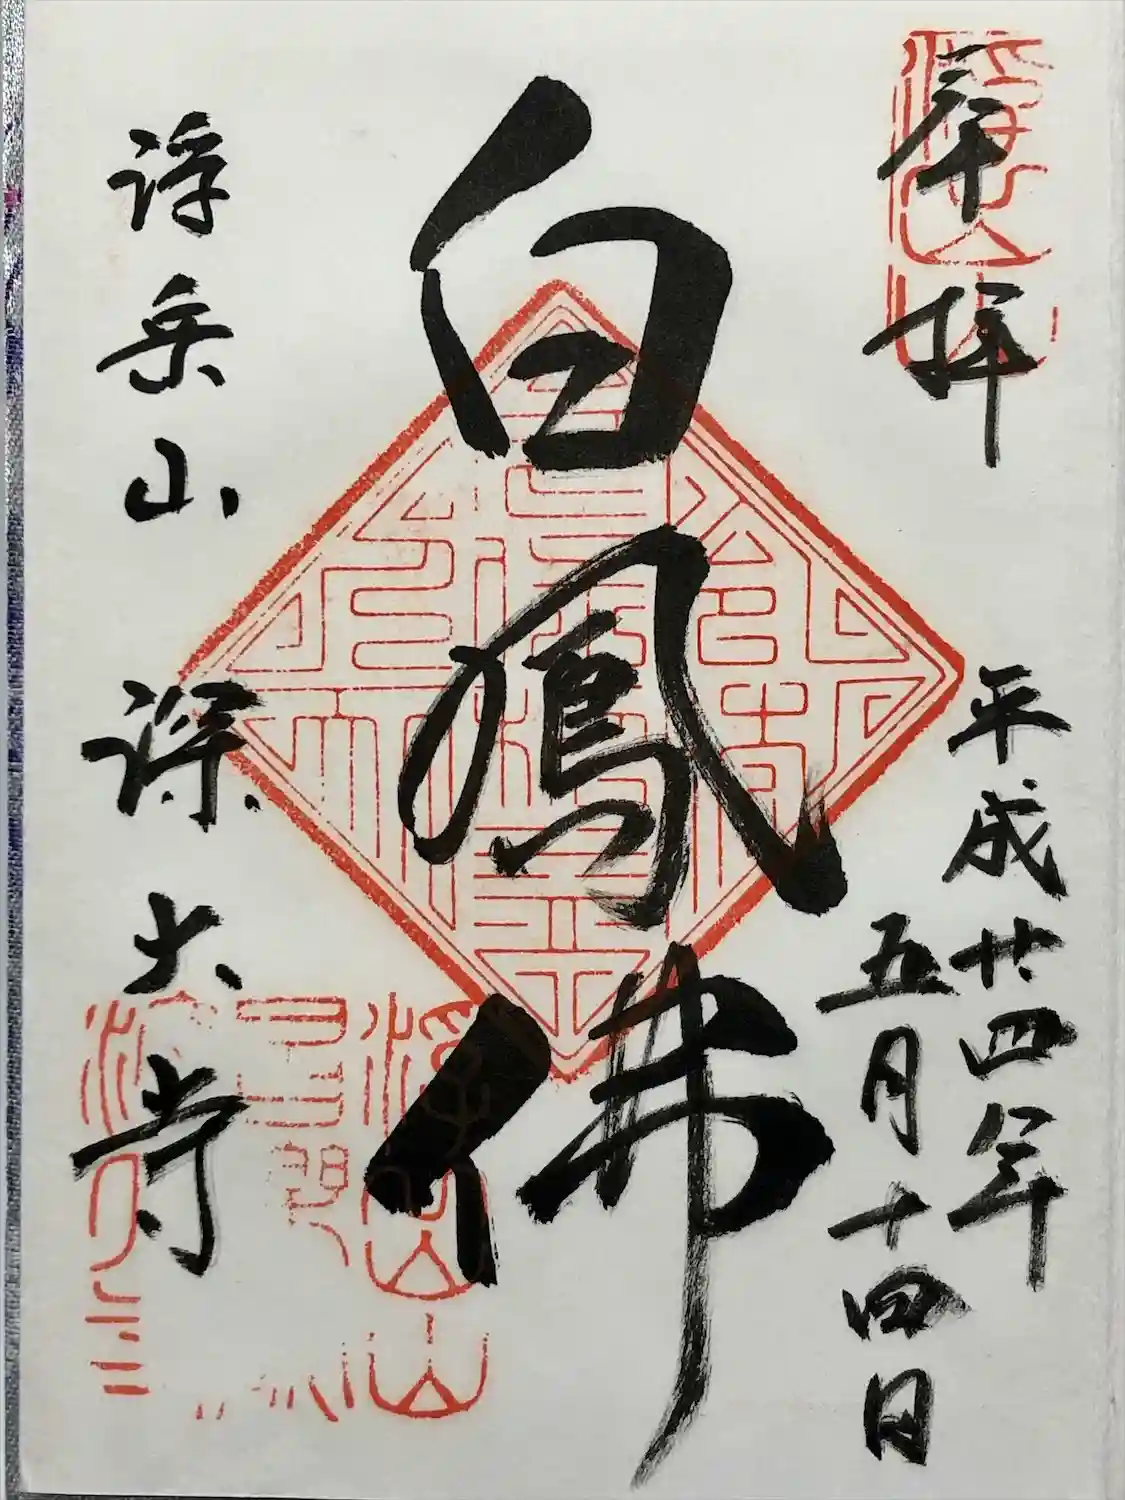 奉拝
平成廿四年
五月十四日
白鳳佛
浮岳山
深大寺